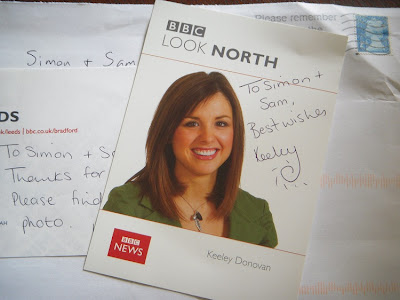 Please remember
the
Simon + Sam
DS
k/leeds | bbc.co.uk/bradford
To Simon + Sa
Thanks for
Please find
photo.
BBC
LOOK NORTH
To Simon +
Sam,
Best wishes
Keeley
BBC
NEWS
Keeley Donovan